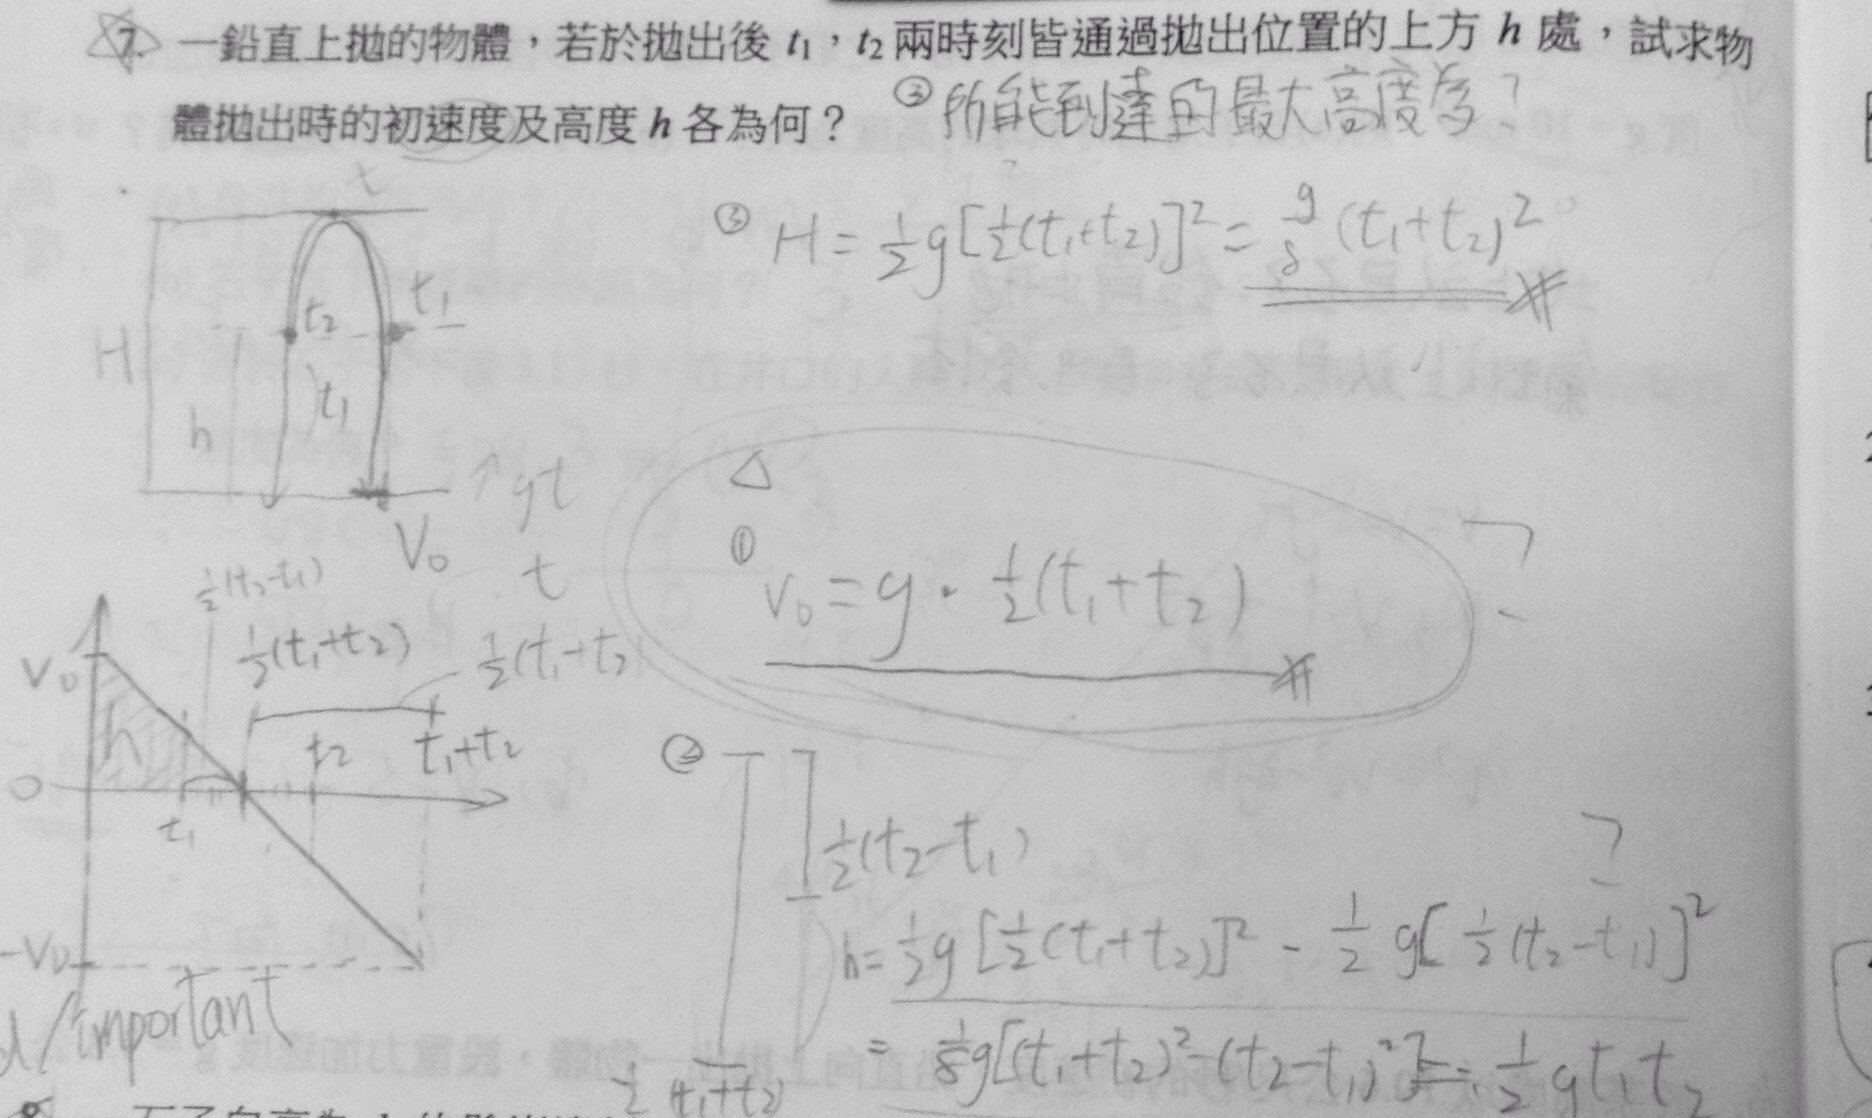 7. 一鉛直上拋的物體，若於拋出後 t₁，t₂ 兩時刻皆通過拋出位置的上方 h 處，試求物
體拋出時的初速度及高度 h 各為何？ ③所能到達的最大高度為？
t
③ H = ½g[½(t₁+t₂)]² = g/8 (t₁+t₂)²
t₂ t₁
H
t₁
h
↑gt
V₀ t
△
① V₀ = g · ½(t₁+t₂)
?
½(t₂-t₁)
½(t₁+t₂) ½(t₁+t₂)
V₀
h t₂ t₁+t₂
0
t₁
② ½(t₂-t₁)
?
h = ½g[½(t₁+t₂)]² - ½g[½(t₂-t₁)]²
-V₀
important
= ⅛g[(t₁+t₂)²-(t₂-t₁)²] = ½gt₁t₂
½(t₁+t₂)